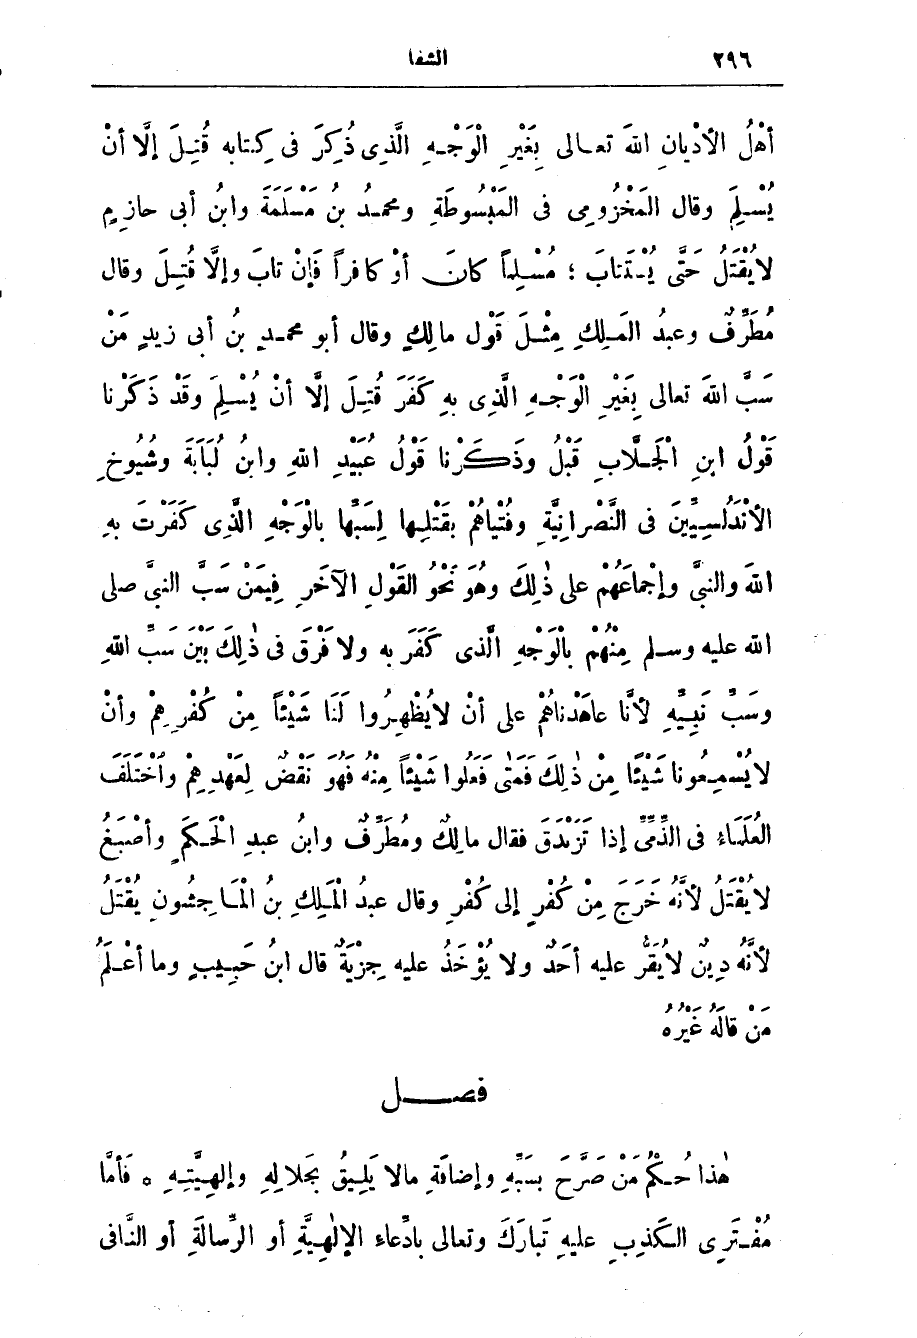 ٢٩٦ الشفا
أهْلُ الأدْيانِ اللهَ تعالى بِغَيْرِ الْوَجْهِ الَّذِى ذُكِرَ فى كِتابِه قُتِلَ إلَّا أنْ
يُسْلِمَ وقال المَخْزُومِى فى المَبْسُوطَةِ ومحمدُ بنُ مَسْلَمَةَ وابنُ أبى حازِمٍ
لايُقْتَلُ حَتَّى يُسْتَتابَ ؛ مُسْلِماً كانَ أوْ كافراً فَإنْ تابَ وإلَّا قُتِلَ وقال
مُطَرِّفٌ وعبدُ المَلِكِ مِثْلَ قَوْلِ مالِكٍ وقال أبو محمدٍ بنُ أبى زيدٍ مَنْ
سَبَّ اللهَ تعالى بِغَيْرِ الْوَجْهِ الَّذِى بِهِ كَفَرَ قُتِلَ إلَّا أنْ يُسْلِمَ وقَدْ ذَكَرْنا
قَوْلُ ابنِ الْجَلَّابِ قَبْلُ وذَكَرْنا قَوْلُ عُبَيْدِ اللهِ وابنُ لُبَابَةَ وشُيُوخِ
الأنْدَلُسِيِّينَ فى النَّصْرانِيَّةِ وفُتْياهُمْ بِقَتْلِها لِسَبِّها بِالْوَجْهِ الَّذِى كَفَرَتْ بِهِ
اللهَ والنبىَّ وإجْماعَهُمْ على ذٰلِكَ وهُوَ نَحْوُ القَوْلِ الآخَرِ فِيمَنْ سَبَّ النبىَّ صلى
الله عليه وسلم مِنْهُمْ بِالْوَجْهِ الَّذى كَفَرَ به ولا فَرْقَ فى ذٰلِكَ بَيْنَ سَبِّ اللهِ
وسَبِّ نَبِيِّهِ لأنَّا عاهَدْناهُمْ على أنْ لايُظْهِرُوا لَنَا شَيْئاً مِنْ كُفْرِهِمْ وأنْ
لايُسْمِعُونا شَيْئًا مِنْ ذٰلِكَ فَمَتٰى فَعَلُوا شَيْئاً مِنْهُ فَهُوَ نَقْضٌ لِعَهْدِهِمْ واخْتَلَفَ
العُلَمَاءُ فى الذِّمِّىِّ إذا تَزَنْدَقَ فقال مالِكٌ ومُطَرِّفٌ وابنُ عبدِ الْحَكَمِ وأصْبَغُ
لايُقْتَلُ لأنَّهُ خَرَجَ مِنْ كُفْرٍ إلى كُفْرٍ وقال عبدُ الْمَلِكِ بنُ الْمَاجِشُونِ يُقْتَلُ
لأنَّهُ دِينٌ لايُقَرُّ عليه أحَدٌ ولا يُؤْخَذُ عليه جِزْيَةٌ قال ابنُ حَبِيبٍ وما أعْلَمُ
مَنْ قالَهُ غَيْرُهُ
فصل
هٰذا حُكْمُ مَنْ صَرَّحَ بِسَبِّهِ وإضافَةِ مالا يَلِيقُ بِجَلالِهِ وإلٰهِيَّتِهِ ٥ فَأمَّا
مُفْتَرِى الكَذِبِ عليهِ تَبارَكَ وتعالى بادِّعاءِ الإلٰهِيَّةِ أو الرِّسالَةِ أو النَّافى